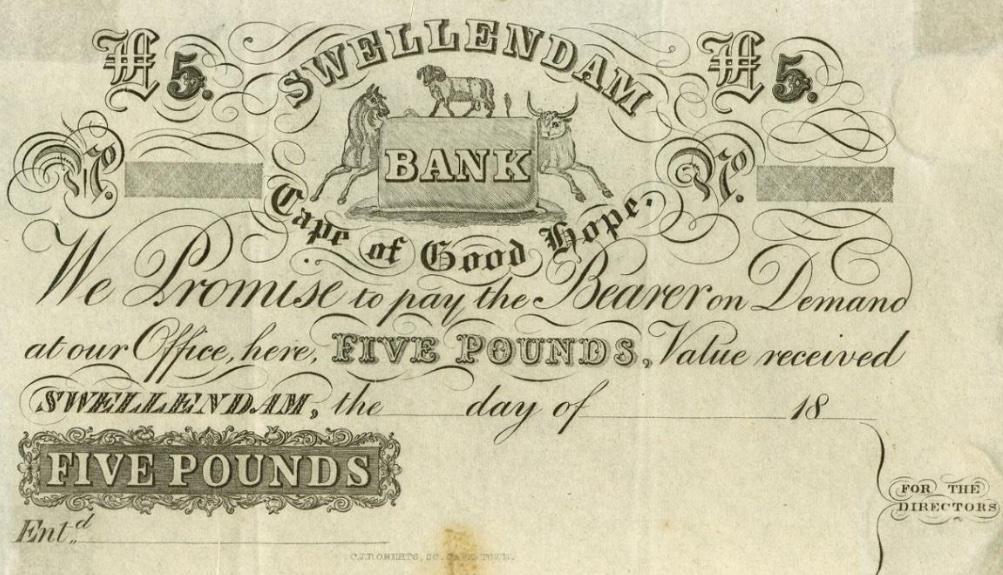 £5. SWELLENDAM £5.
No. BANK No.
Cape of Good Hope.
We Promise to pay the Bearer on Demand
at our Office, here, FIVE POUNDS, Value received
SWELLENDAM, the day of 18
FIVE POUNDS
FOR THE
DIRECTORS
Ent.d
C.J. ROBERTS, SC. CAPE TOWN.